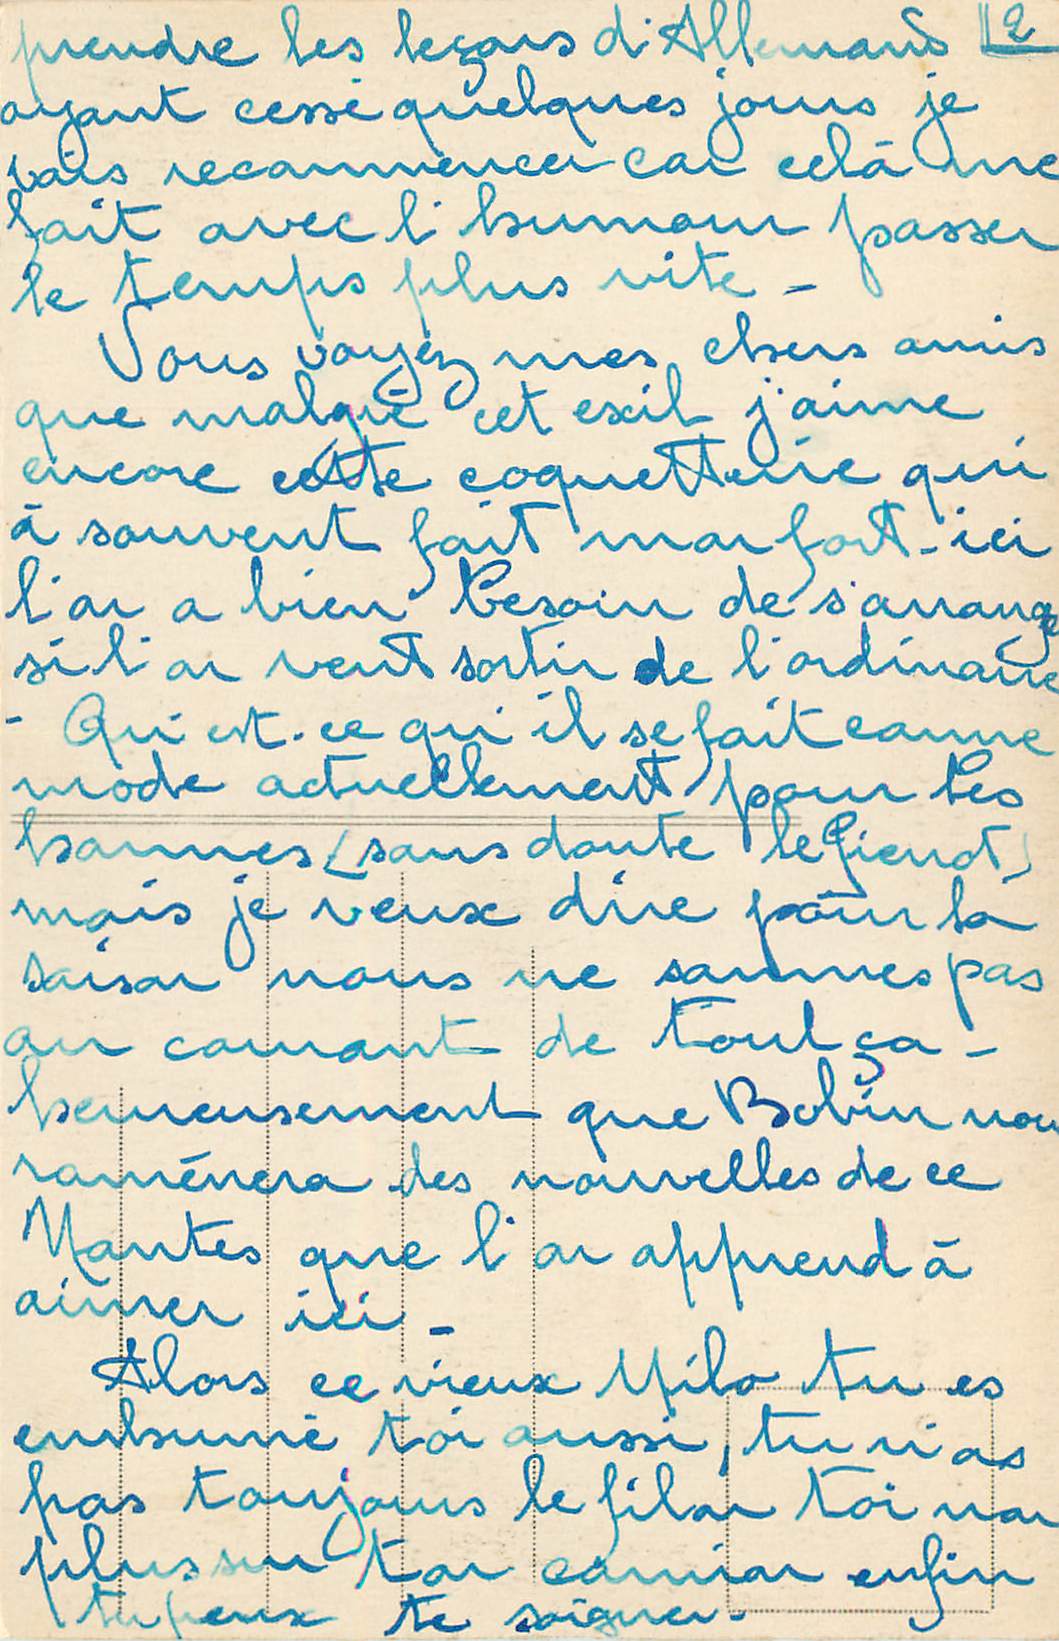 prendre les leçons d'Allemand 2
ayant cessé quelques jours je
vais recommencer car celà me
fait avec l'humour passer
le temps plus vite -
Vous voyez mes chers amis
que malgré cet exil j'aime
encore cette coquetterie qui
à souvent fait mon fort - ici
l'on a bien besoin de s'arrang
si l'on veut sortir de l'ordinaire
- Qu'est-ce qu'il se fait comme
mode actuellement pour les
hommes (sans doute le )
mais je veux dire pour la
saison nous ne sommes pas
au courant de tout ça -
heureusement que Bobin nou
ramènera des nouvelles de ce
Nantes que l'on apprend à
aimer ici -
Alors ce vieux Milo tu es
enrhumé toi aussi, tu n'as
pas toujours le filon toi non
plus sur ton camion enfin
tu peux te soigner.